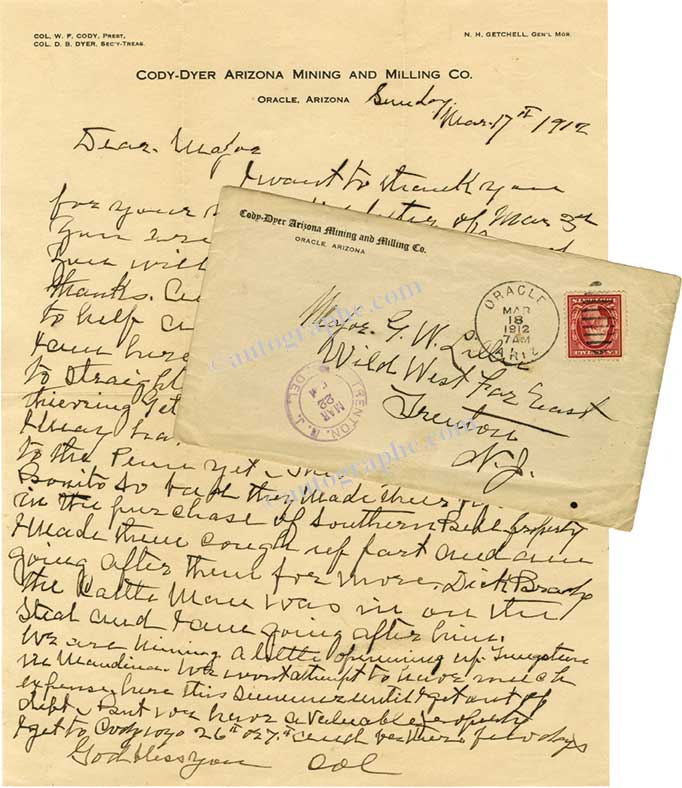 COL. W. F. CODY, PREST.
COL. D. B. DYER, SEC'Y-TREAS.
N. H. GETCHELL, GEN'L MGR.
CODY-DYER ARIZONA MINING AND MILLING CO.
ORACLE, ARIZONA
Sunday
Mar. 17th 1912
Dear Major
I want to thank you
for your letter of Mar 3rd
You
you will
thanks.
to help
I am here
to straight
thieving Get
I may ha
to the Penn yet
Bonito so bad they made their
in the purchase of Southern Belle property
I made them cough up part and am
going after them for more. Dick
the Cattle Man was in on the
steal and I am going after him.
We are mining a little opening up Tungsten
We wont attempt to have much
expense here this summer until I get out of
debt. But we have a valuable property
I get to Cody Wyo 26th or 7th and be there few days
God bless you Col
Cody-Dyer Arizona Mining and Milling Co.
ORACLE, ARIZONA
Major G. W. Lillie
Wild West Far East
Trenton
N.J.
ORACLE
MAR
18
1912
7 AM
ARIZ.
TRENTON, N. J.
MAR
22
DEL
©autographe.com
©autographe.com